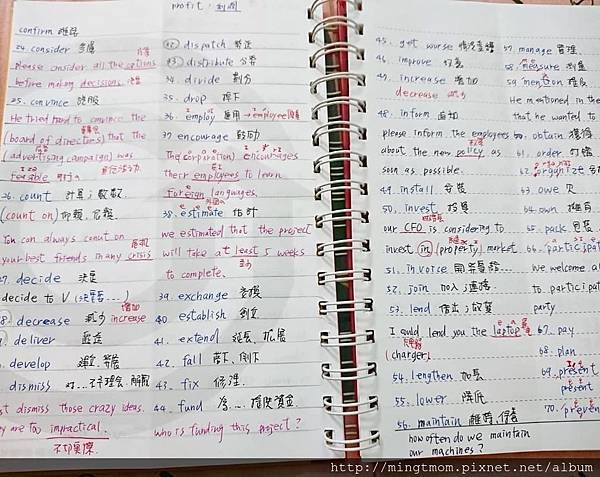 profit : 利潤
confirm 確認
24. consider 考慮
please consider all the options
before making decisions. 決定
25. convince 說服
He tried hard to convince the
(board of directors) that the 董事會
(advertising campaign) was
feasible
26. count 計算；數數
(count on) 仰賴
You can always count on
your best friends in any crisis 危機
27. decide 決定
decide to V
28. decrease 減少 increase 增加
deliver 遞送
develop
dismiss 解散
dismiss those crazy ideas.
are too impractical.
不切實際
32. dispatch
33. distribute 分發
34. divide 劃分
35. drop 掉下
36. employ 雇用 → employee
37. encourage 鼓勵
The (corporation) encourages
their employees to learn
foreign languages. 外國的
38. estimate 估計
we estimated that the project
will take at least 5 weeks
to complete. 至少
39. exchange 交換
40. establish 創立
41. extend 延長、擴展
42. fall 落下、倒下
43. fix 修理
44. fund 為…提供資金
who is funding this project?
45. get worse
46. improve 改善
47. increase 增加
decrease 減少
48. inform 通知
please inform the employees
about the new policy as
soon as possible.
49. install 安裝
50. invest 投資
our CFO is considering to
invest (in) (property) market
51. invoice
52. join 加入；連接
53. lend 借出；放貸
I could lend you the laptop
(charger)
54. lengthen 加長
55. lower 降低
56. maintain 維持、保養
how often do we maintain
our machines?
57. manage 管理
58. measure 測量
59. mention 提及
He mentioned in the
that he wanted to
60. obtain 獲得
61. order 訂購
62. organize
63. owe 欠
64. own 擁有
65. pack 包裝
66. participat
We welcome a
to participat
party
67. pay
68. plan
69. present
present
70. preven
http://mingtmom.pixnet.net/album